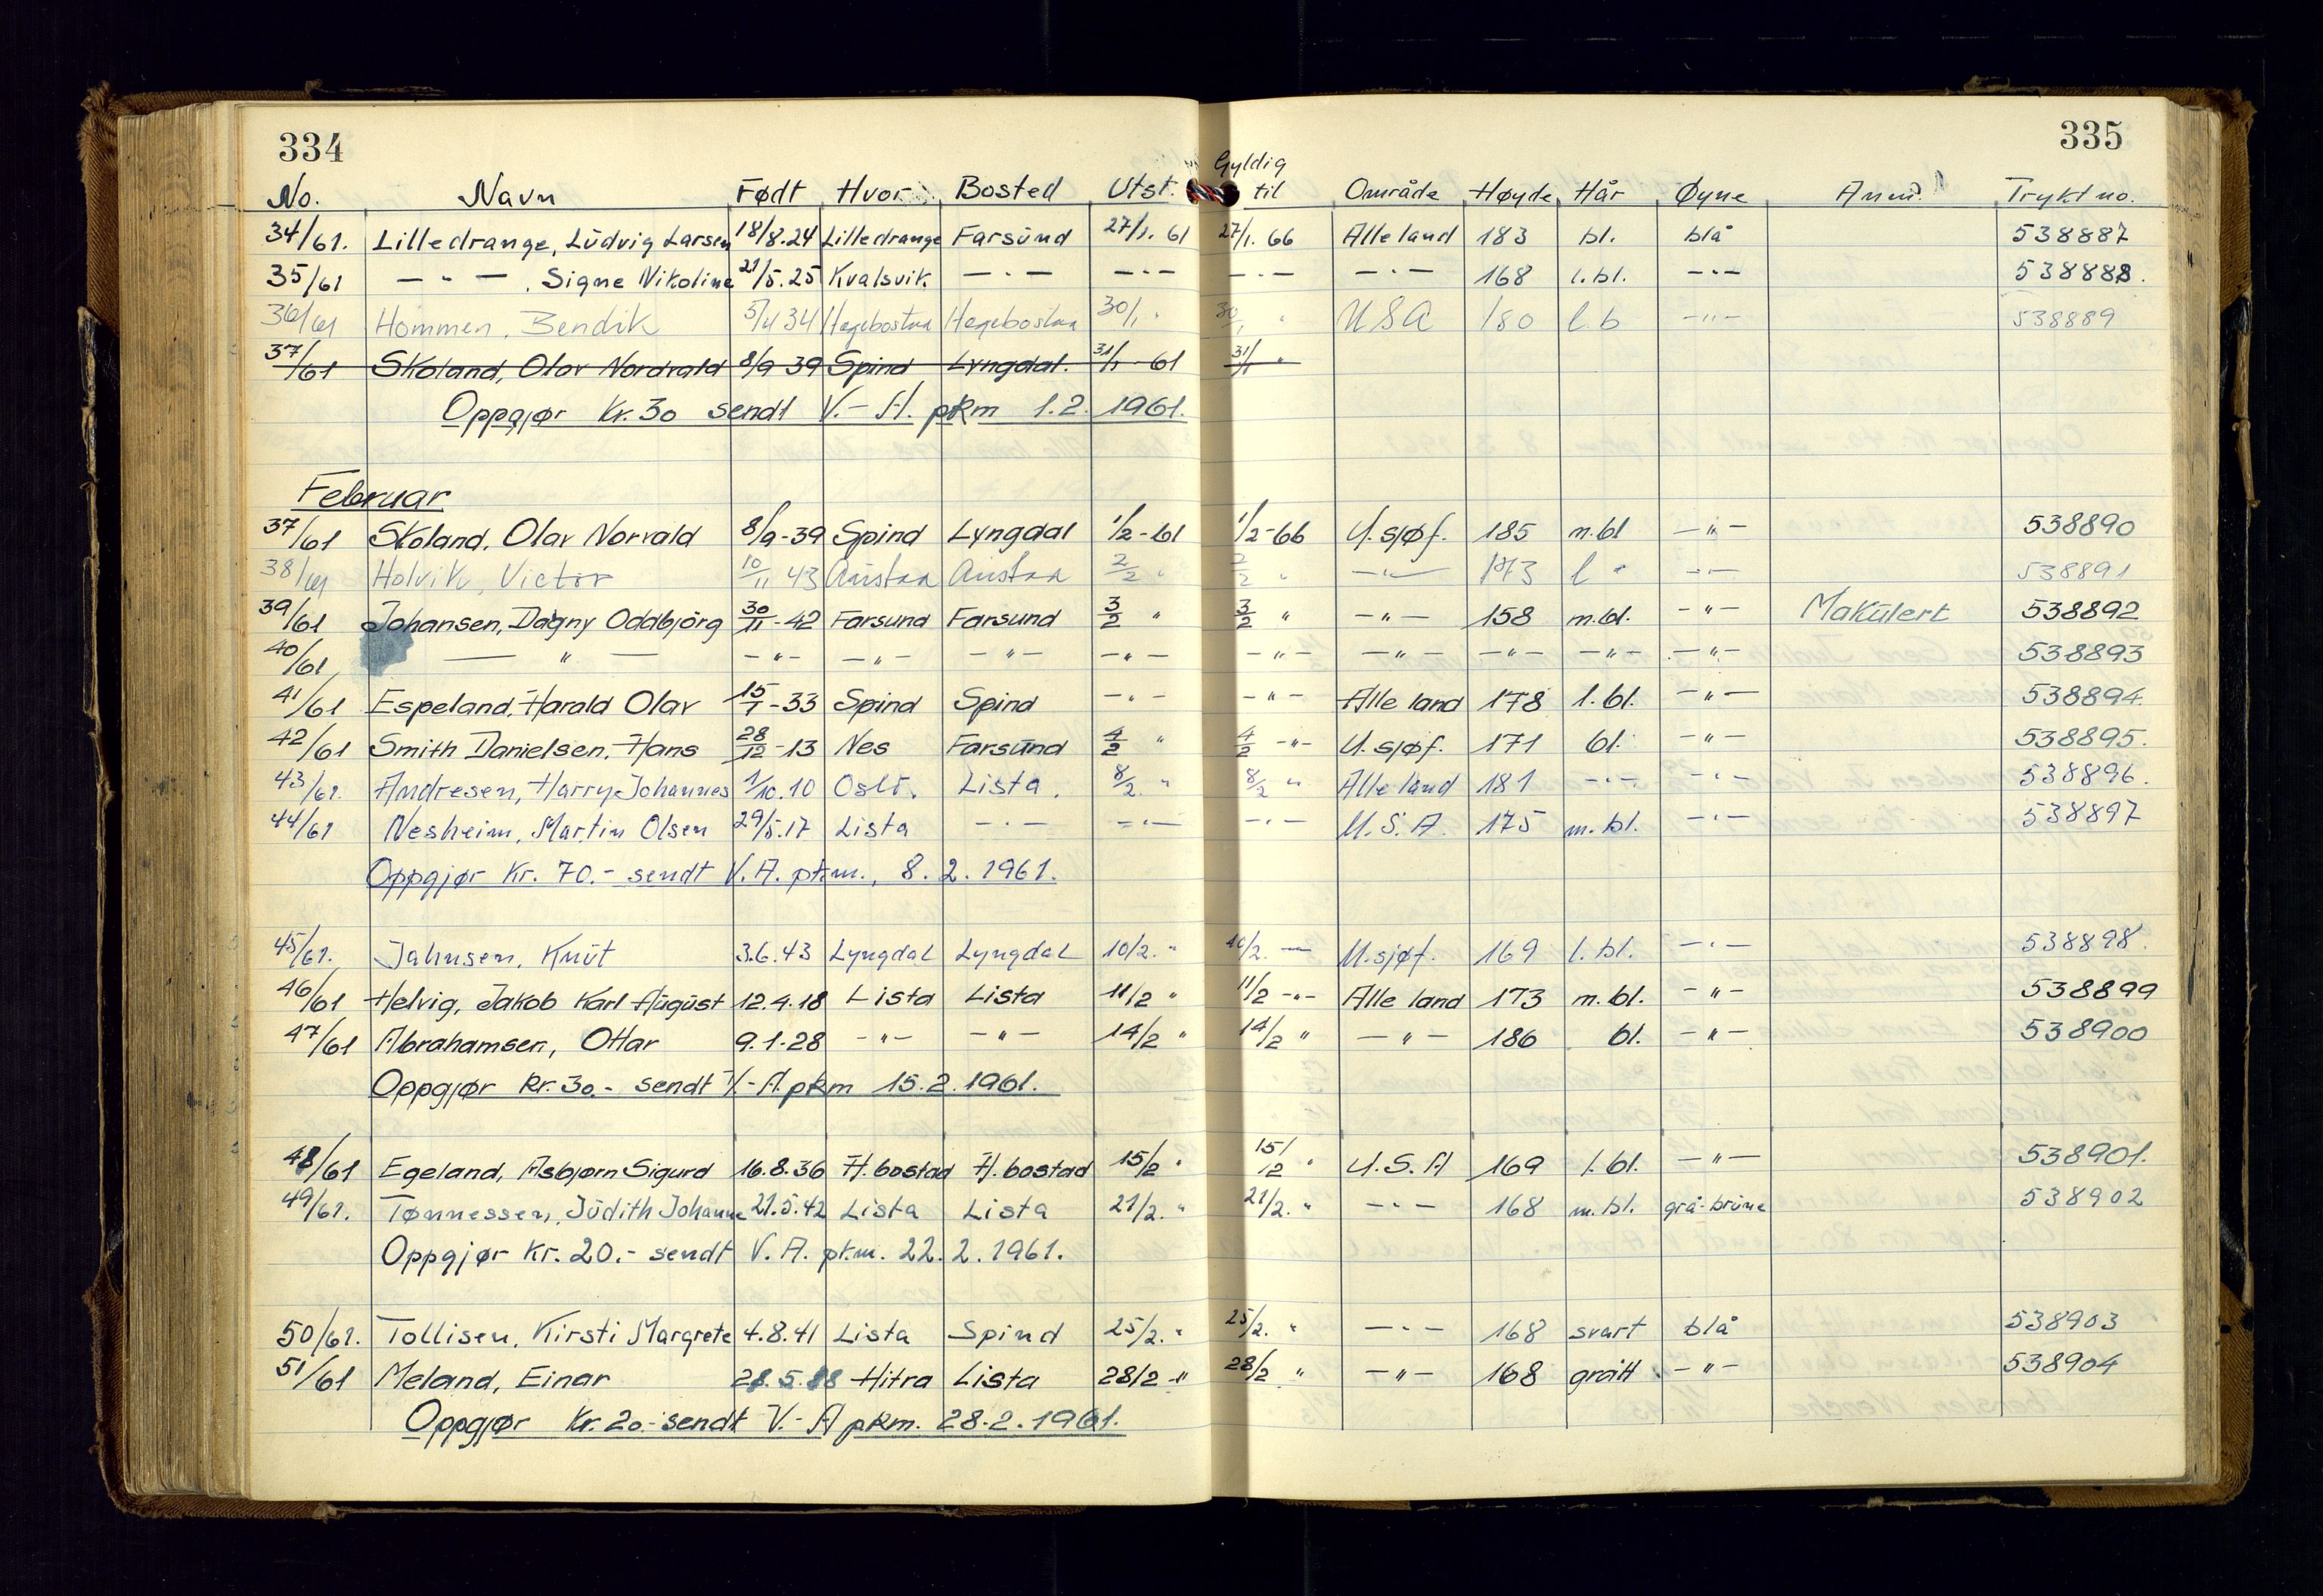 334
335
No. Navn Født Hvor Bosted Utst. Gyldig til Område Høyde Hår Øyne Anm. Trykt no.
34/61. Lilledrange, Ludvig Larsen 18/8.24 Lilledrange Farsund 27/1. 61 27/1. 66 Alle land 183 bl. blå 538887
35/61 — " — , Signe Nikoline 21/5.25 Kvalsvik. — " — — " — — " — — " — 168 l.bl. — " — 538888.
36/61 Hommen, Bendik 5/4 34 Hegebostad Hegebostad 30/1 " 30/1 " USA 180 l.b — " — 538889
37/61 Skoland, Olav Nordvald 8/9 39 Spind Lyngdal. 31/1 - 61 31/1 "
Oppgjør Kr. 30 sendt V.-A. pkm 1.2. 1961.
Februar
37/61 Skoland, Olav Norvald 8/9-39 Spind Lyngdal 1/2-61 1/2-66 U.sjøf. 185 m.bl — " — 538890
38/61 Holvik, Victor 10/11 43 Austad Austad 2/2 " 2/2 " — " — 173 l " — " — 538891
39/61 Johansen, Dagny Oddbjörg 30/11-42 Farsund Farsund 3/2 " 3/2 " — " — 158 m.bl. — " — Makulert 538892
40/61 — " — — " — — " — — " — — " — — " — — " — — " — — " — — " — 538893
41/61 Espeland, Harald Olav 15/7-33 Spind Spind — " — — " — Alle land 178 l.bl. — " — 538894.
42/61 Smith Danielsen, Hans 28/12-13 Nes Farsund 4/2 " 4/2 — " — U.sjøf. 171 bl. — " — 538895.
43/61. Andresen, Harry Johannes 1/10.10 Oslo. Lista. 8/2. " 8/2 " Alle land 181 — " — — " — 538896.
44/61 Nesheim, Martin Olsen 29/5.17 Lista — " — — " — — " — U.S.A. 175 m.bl. — " — 538897
Oppgjør Kr. 70.- sendt V.A. pkm., 8.2.1961.
45/61. Jahnsen, Knut 3.6.43 Lyngdal Lyngdal 10/2. " 10/2. — U.sjøf. 169 l.bl. — " — 538898.
46/61 Helvig, Jakob Karl August 12.4.18 Lista Lista 11/2 " 11/2 — " — Alle land 173 m.bl. — " — 538899
47/61 Abrahamsen, Ottar 9.1.28 — " — — " — 14/2 " 14/2 " — " — 186 bl. — " — 538900
Oppgjør Kr. 30.- sendt V.-A. pkm 15.2.1961.
48/61 Egeland, Asbjørn Sigurd 16.8.36 H.bostad H.bostad 15/2 " 15/12 " U.S.A 169 l.bl. — " — 538901.
49/61. Tønnessen, Judith Johanne 21.5.42 Lista Lista 21/2. " 21/2. " — " — 168 m.bl. grå-brune 538902
Oppgjør Kr. 20.- sendt V.A. pkm. 22.2.1961.
50/61. Tollisen, Kirsti Margrete 4.8.41 Lista Spind 25/2. " 25/2. " — " — 168 svart blå 538903
51/61 Meland, Einar 28.5.88 Hitra Lista 28/2 -" 28/2 " — " — 168 grått — " — 538904
Oppgjør Kr. 20.- sendt V.-A pkm. 28.2.1961.